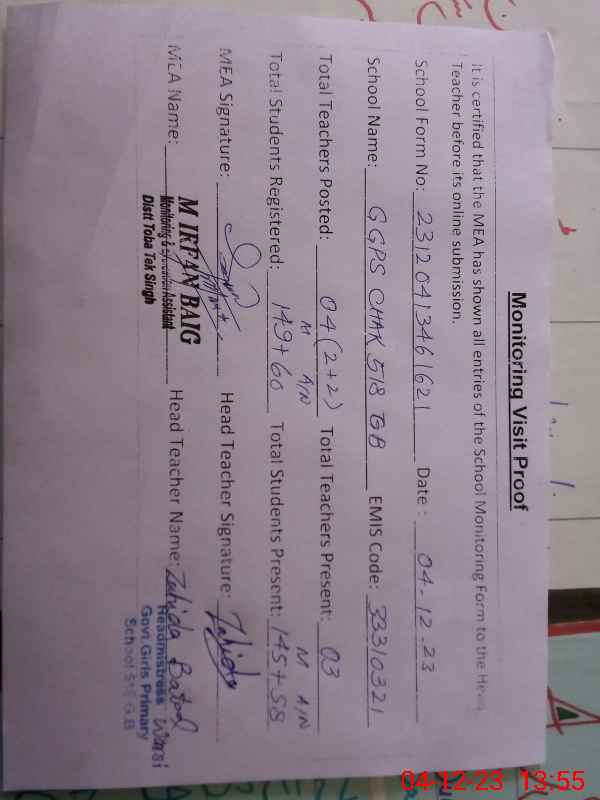 Monitoring Visit Proof
It is certified that the MEA has shown all entries of the School Monitoring Form to the Head
Teacher before its online submission.
School Form No: 23120413461621 Date : 04-12-23
School Name: GGPS CHAK 518 GB EMIS Code: 33310321
Total Teachers Posted: 04(2+2) Total Teachers Present: 03
M A/N M A/N
Total Students Registered: 149+60 Total Students Present: 145+58
MEA Signature: Head Teacher Signature: Zahida
MEA Name: M IRFAN BAIG Head Teacher Name: Zahida Batool
Monitoring & Evaluation Assistant
Distt Toba Tek Singh
Headmistress
Govt. Girls Primary
School 518 G.B
04-12-23 13:55